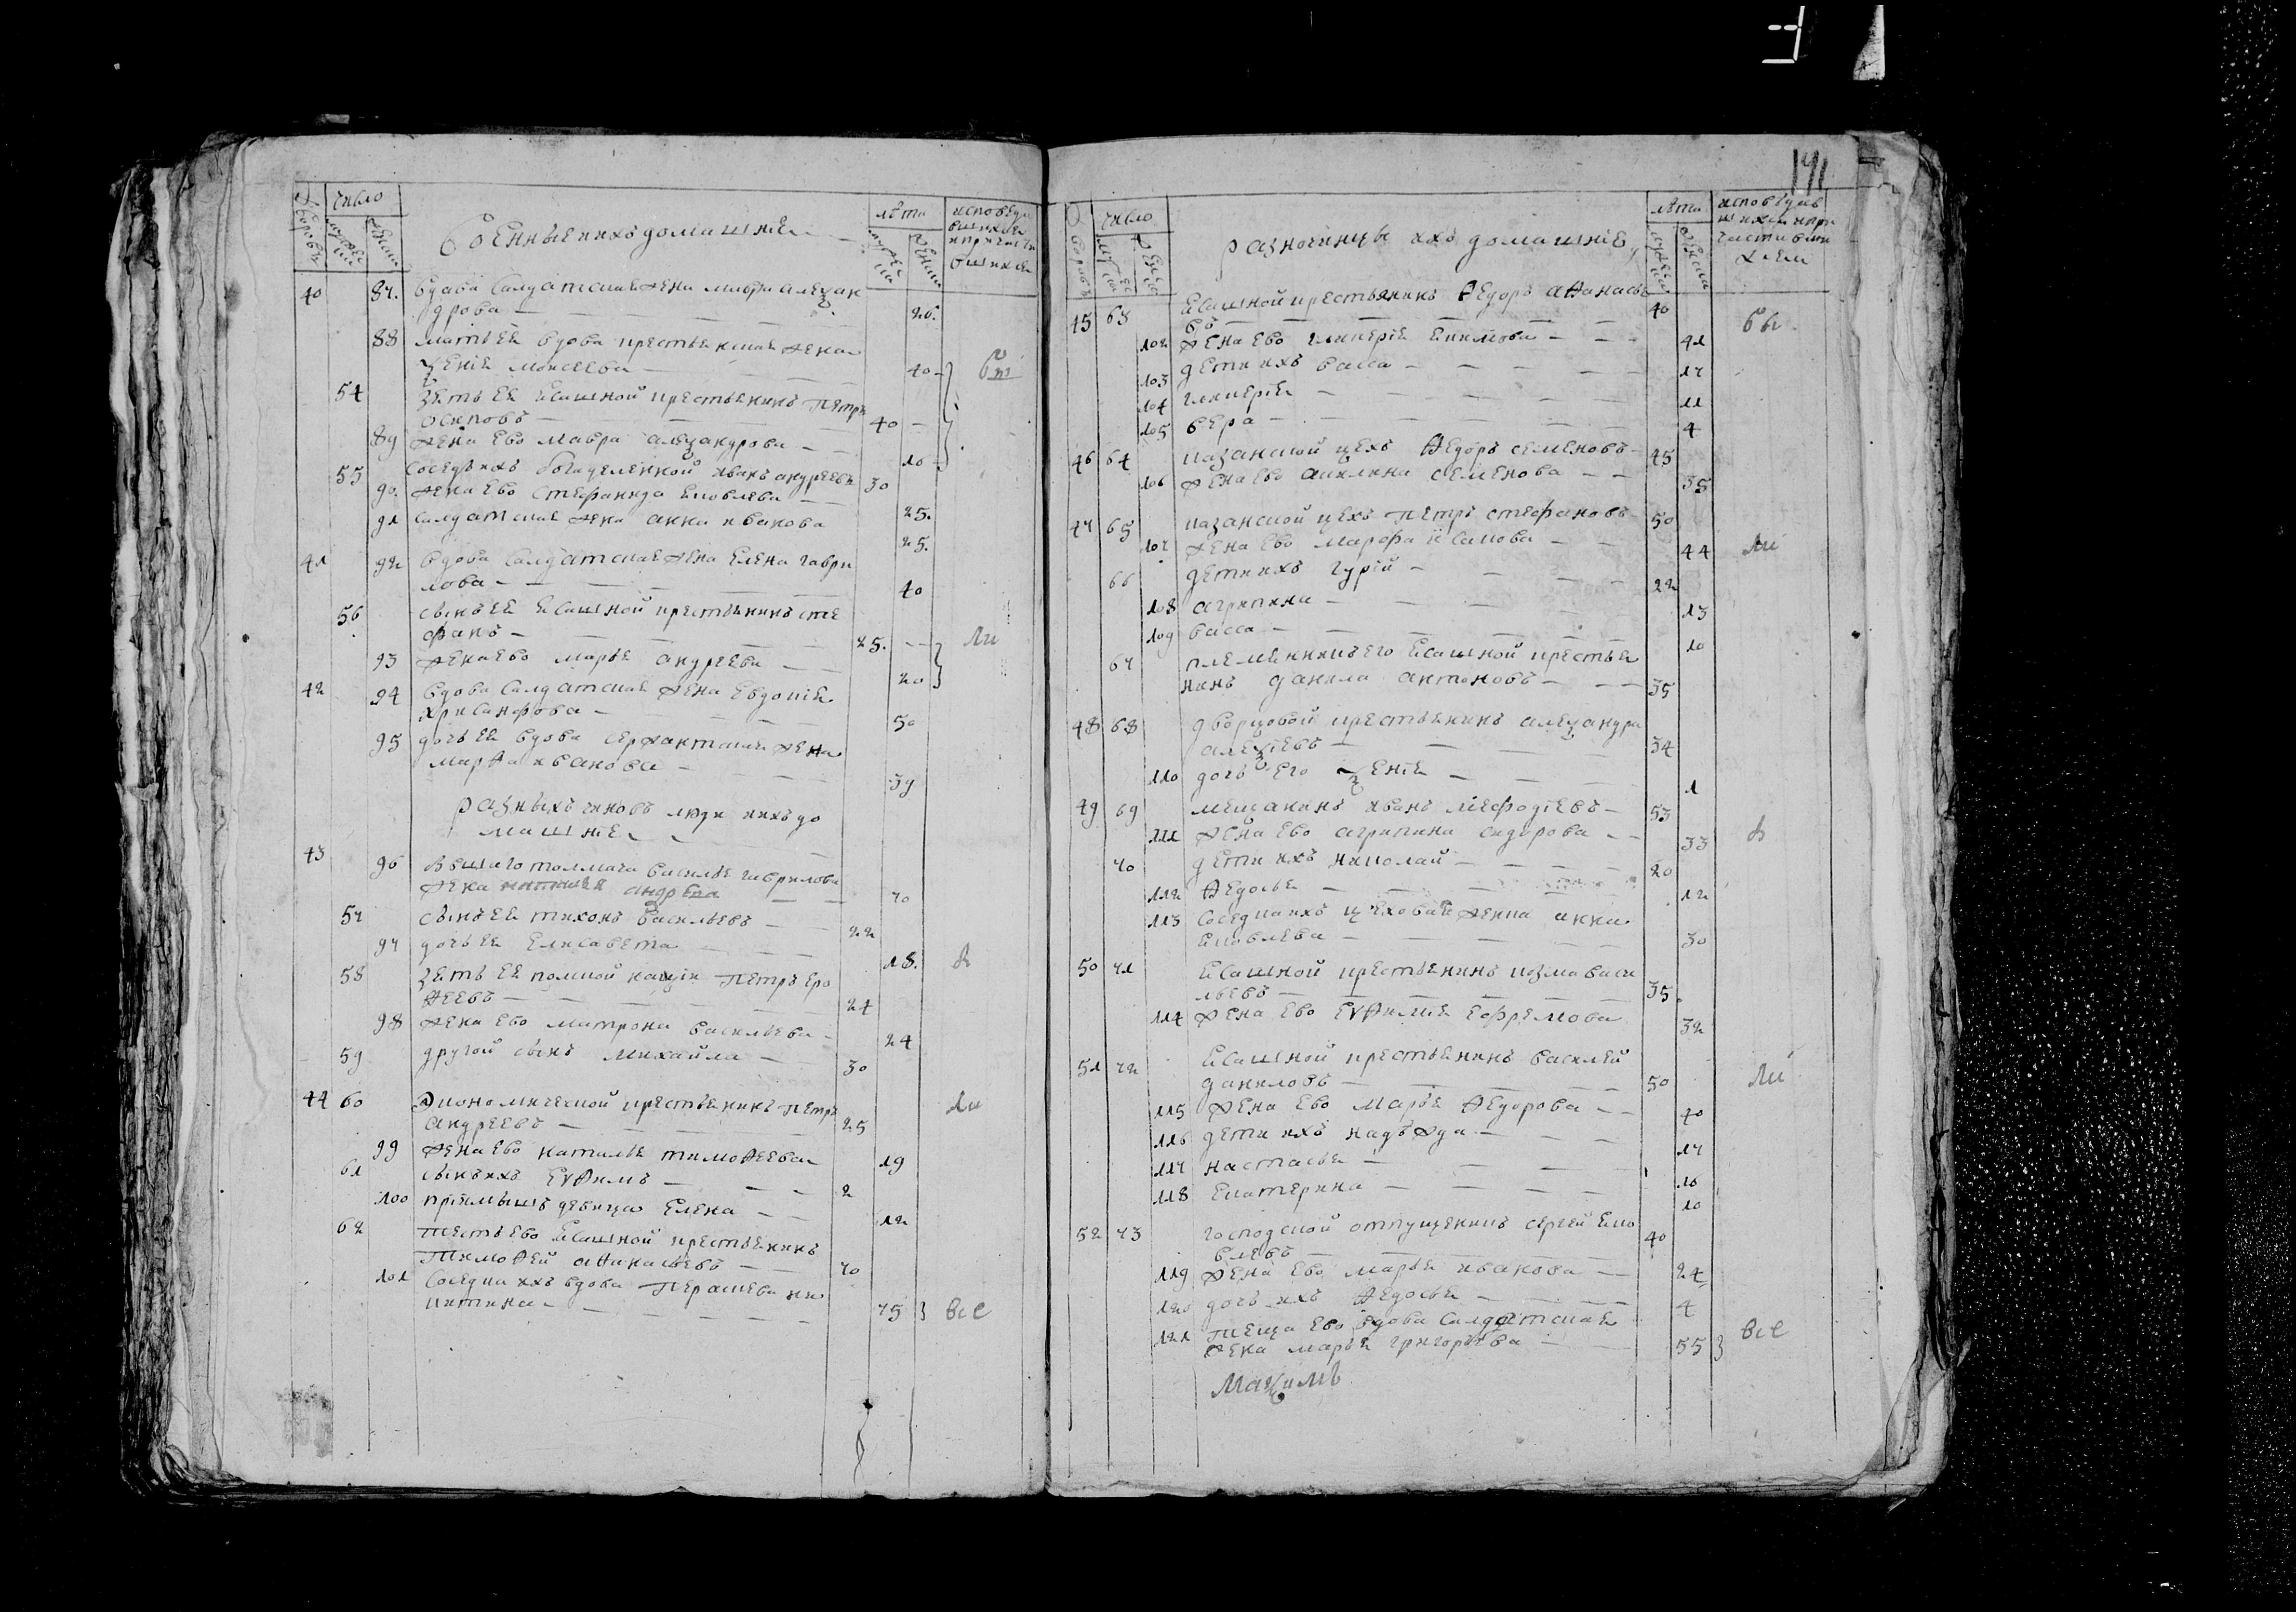 число
Военные и ихъ домашнїе
лѣта
40 87. Вдова Салдатская жена Алеѯан
дрова 20.
88 мать ея вдова крестьянская жена
ѯенїя Моисеева 40
54 зять ея Ясашной крестьянинъ Петръ
Осиповъ 40
89 жена Ево Мавра Алеѯандрова
55 соседъ ихъ богаделенной Иванъ Андреевъ 30
90. жена Ево Стефанида Яковлева 25.
91 Салдатская жена Анна Иванова 25.
41 92 Вдова Салдатская жена Елена Гаври
лова 40
56 сынъ ея Ясашной крестьянинъ Сте
фанъ 25.
93 жена Ево Марья Андреева 20
42 94 Вдова Салдатская жена Евдокїя
Хрисанфова 50
95 дочь ея вдова сержантская жена
Марѳа Иванова 39
разныхъ чиновъ люди и ихъ до
машнїе
43 96 толмача Василья Гаврилова
жена Андреева 70
57 сынъ ея Тихонъ Васильевъ 22
97 дочь ея Елисавета 18.
58 зять ея Петръ Еро
ѳеевъ 24
98 жена Ево Матрона Васильева 24
59 другой сынъ Михайла 30
44 60 Экономической крестьянинъ Петръ
Андреевъ 25
99 жена Ево Наталья Тимоѳеева 19
61 сынъ ихъ Еѵѳимъ 2
100 прїемышъ девица Елена 12
62 тесть Ево Ясашной крестьянинъ
Тимоѳей Аѳанасьевъ 70
101 Соседка ихъ вдова Парасковья Ни
китина 75 } все
171
число
разночинцы и ихъ домашнїе
лѣта
исповѣдав
шихся и при
частивши
хся
45 63 Ясашной крестьянинъ Ѳедоръ Аѳанасье
въ 40
102 жена Ево Гликерїя Екимова 41
103 дети ихъ Васса 17
104 Гликерїя 11
105 Вера 4
46 64 казанской цехъ Ѳедоръ Семеновъ 45
106 жена Ево Акилина Семенова 38
47 65 казанской цехъ Петръ Стефановъ 50
107 жена Ево Марфа Исакова 44
66 дети ихъ Гурїй 22
108 Агрипина 13
109 Васса 10
67 племянникъ Его Ясашной крестья
нинъ Данила Антоновъ 35
48 68 дворцовой крестьянинъ Алеѯандра
Алеѯїевъ 34
110 дочь Его ѯенїя 1
49 69 мещанинъ Иванъ Мефодїевъ 53
111 жена Ево Агрипина Сидорова 33
70 дети ихъ Николай 20
112 Ѳедосья 12
113 Соседка ихъ цеховая женка Анна
Яковлева 30
50 71 Ясашной крестьянинъ Казма Васи
льевъ 35
114 жена Ево Еѵѳимїя Ефремова 32
51 72 Ясашной крестьянинъ Василей
Даниловъ 50
115 жена Ево Марья Ѳедорова 40
116 дети ихъ Надежда 17
117 Настасья 16
118 Екатерина 10
52 73 Господской отпущеникъ Сергей Яко
влевъ 40
119 жена Ево Марья Иванова 24
120 дочь ихъ Ѳедосья 4
121 теща Ево вдова Салдатская
жена Марья Григорьева 55 } все
Маѯимъ